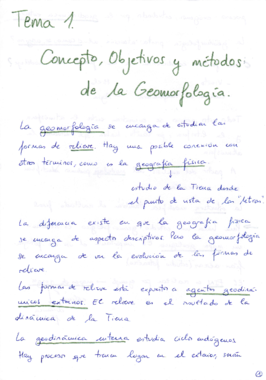 Tema 1.
Concepto, Objetivos y métodos
de la Geomorfología.
La geomorfología se encarga de estudiar las
formas de relieve. Hay una posible conexión con
otros términos, como es la geografía física
↓
estudio de la Tierra desde
el punto de vista de las "letras".
La diferencia existe en que la geografía física
se encarga de aspectos descriptivos. Pero la geomorfología
se encarga de ver la evolución de las formas de
relieve
Las formas de relieve está expuesta a agentes geodiná-
micos externos. El relieve es el resultado de la
dinámica de la Tierra
La geodinámica externa estudia ciclo exógenos
Hay procesos que tienen lugar en el